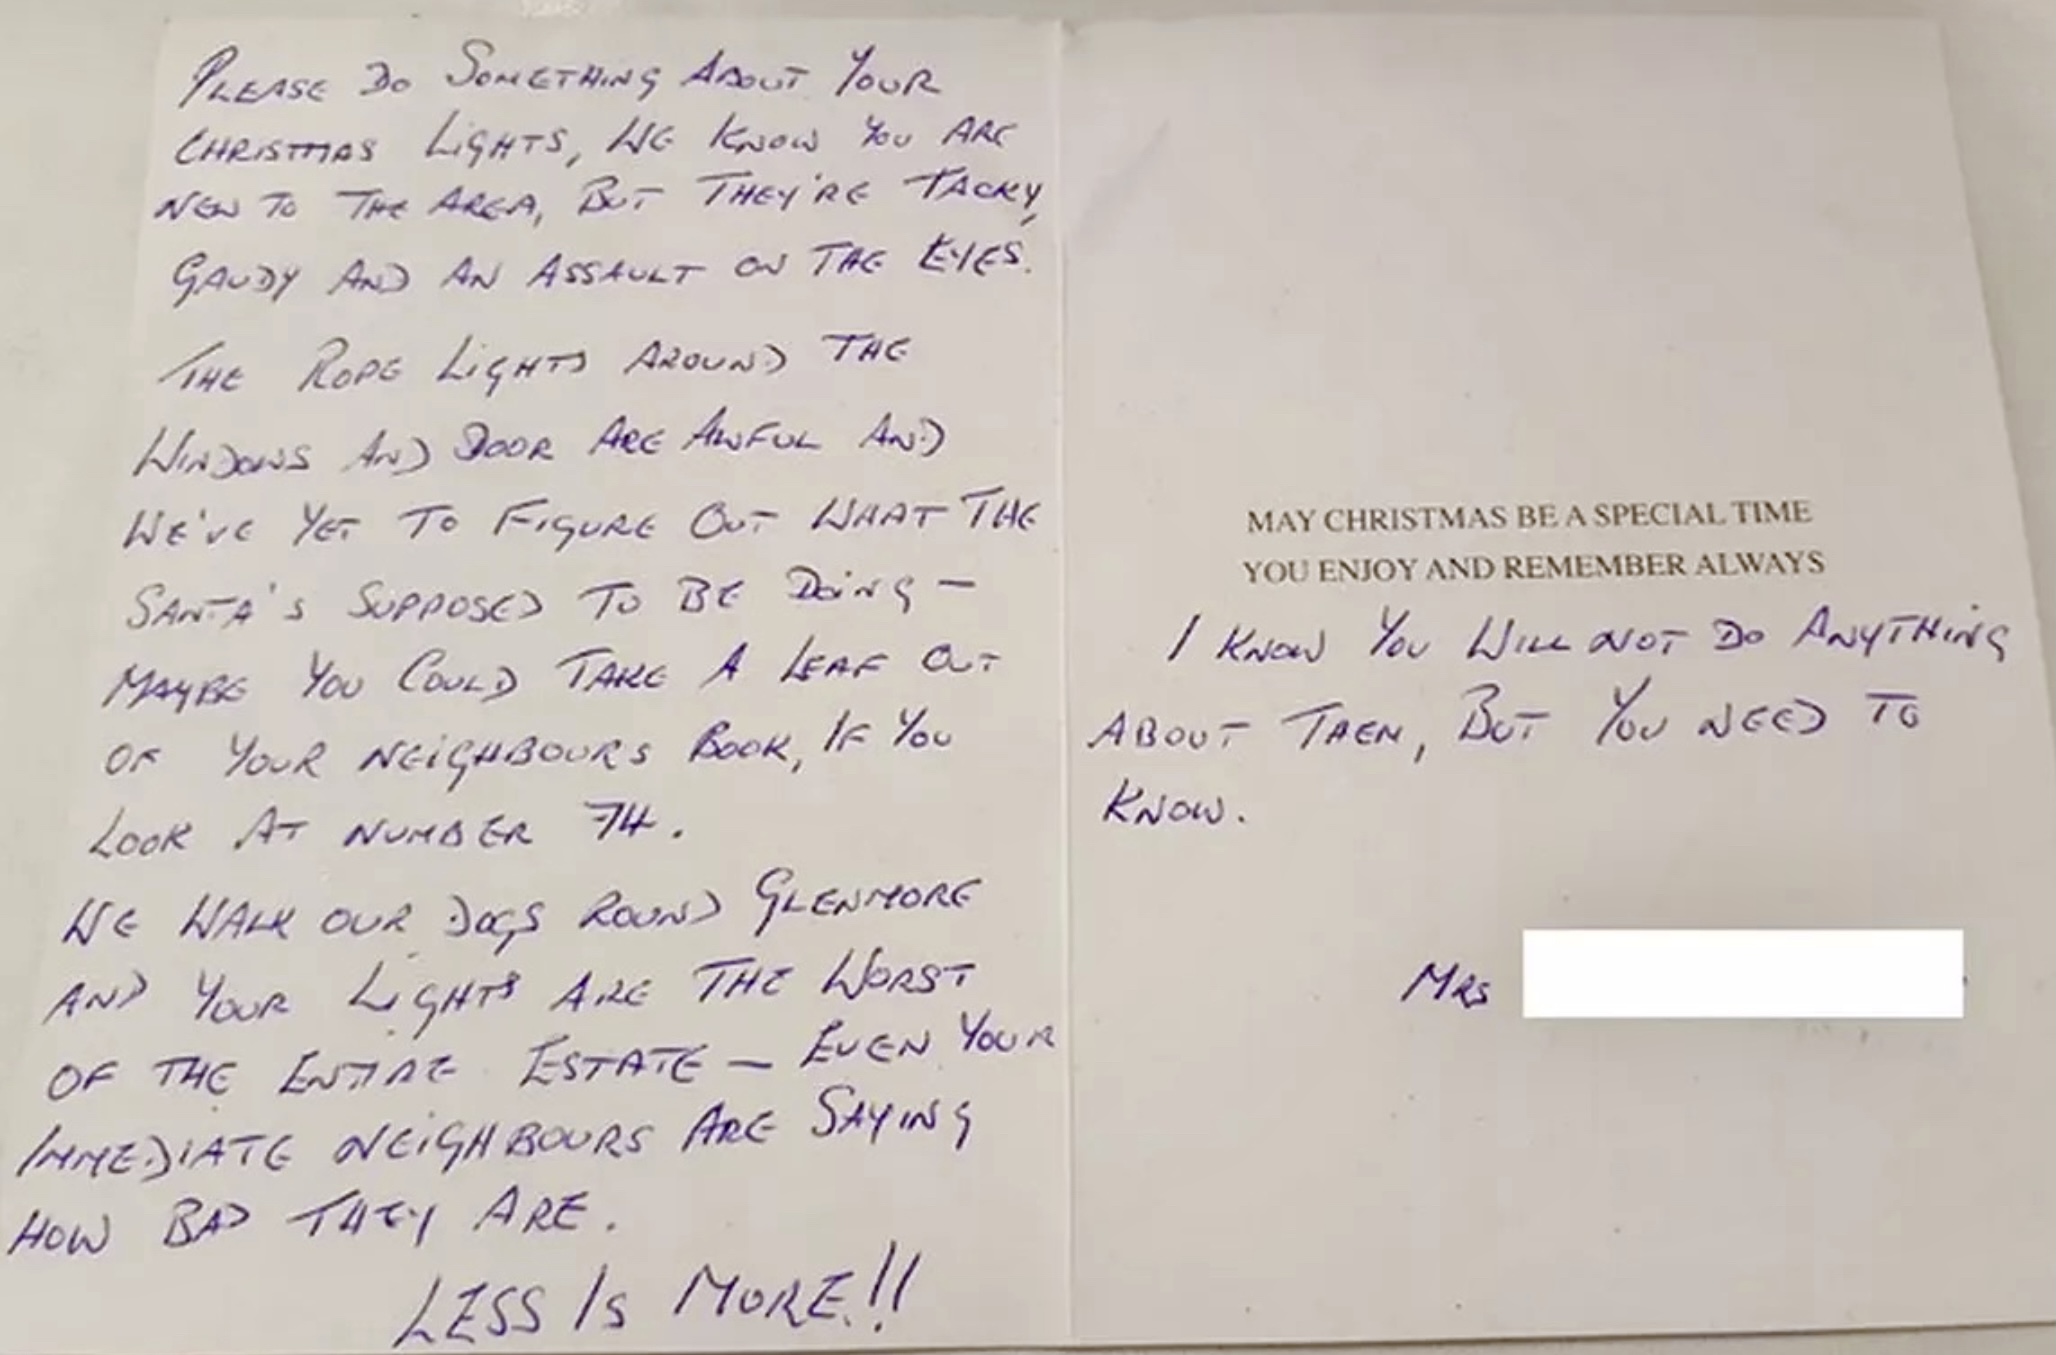 PLEASE DO SOMETHING ABOUT YOUR
CHRISTMAS LIGHTS, WE KNOW YOU ARE
NEW TO THE AREA, BUT THEY'RE TACKY,
GAUDY AND AN ASSAULT ON THE EYES.
THE ROPE LIGHTS AROUND THE
WINDOWS AND DOOR ARE AWFUL AND
WE'VE YET TO FIGURE OUT WHAT THE
SANTA'S SUPPOSED TO BE DOING -
MAYBE YOU COULD TAKE A LEAF OUT
OF YOUR NEIGHBOURS BOOK, IF YOU
LOOK AT NUMBER 74.
WE WALK OUR DOGS ROUND GLENMORE
AND YOUR LIGHTS ARE THE WORST
OF THE ENTIRE ESTATE - EVEN YOUR
IMMEDIATE NEIGHBOURS ARE SAYING
HOW BAD THEY ARE.
LESS IS MORE!!
MAY CHRISTMAS BE A SPECIAL TIME
YOU ENJOY AND REMEMBER ALWAYS
I KNOW YOU WILL NOT DO ANYTHING
ABOUT THEM, BUT YOU NEED TO
KNOW.
MRS